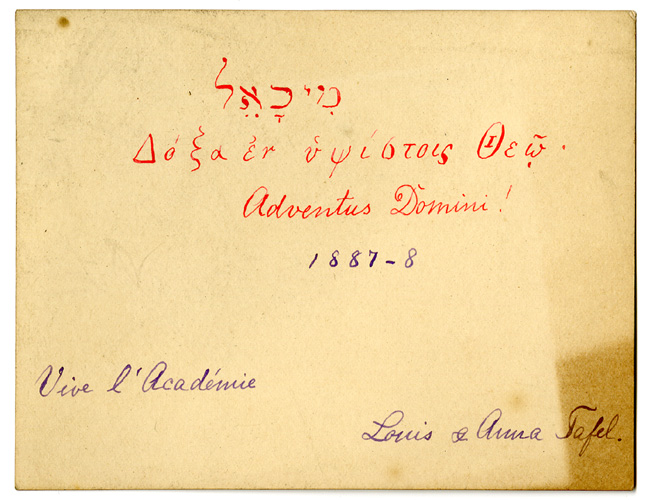 מִיכָאֵל
Δόξα ἐν ὑψίστοις Θεῷ.
Adventus Domini!
1887-8
Vive l'Académie
Louis & Anna Tafel.